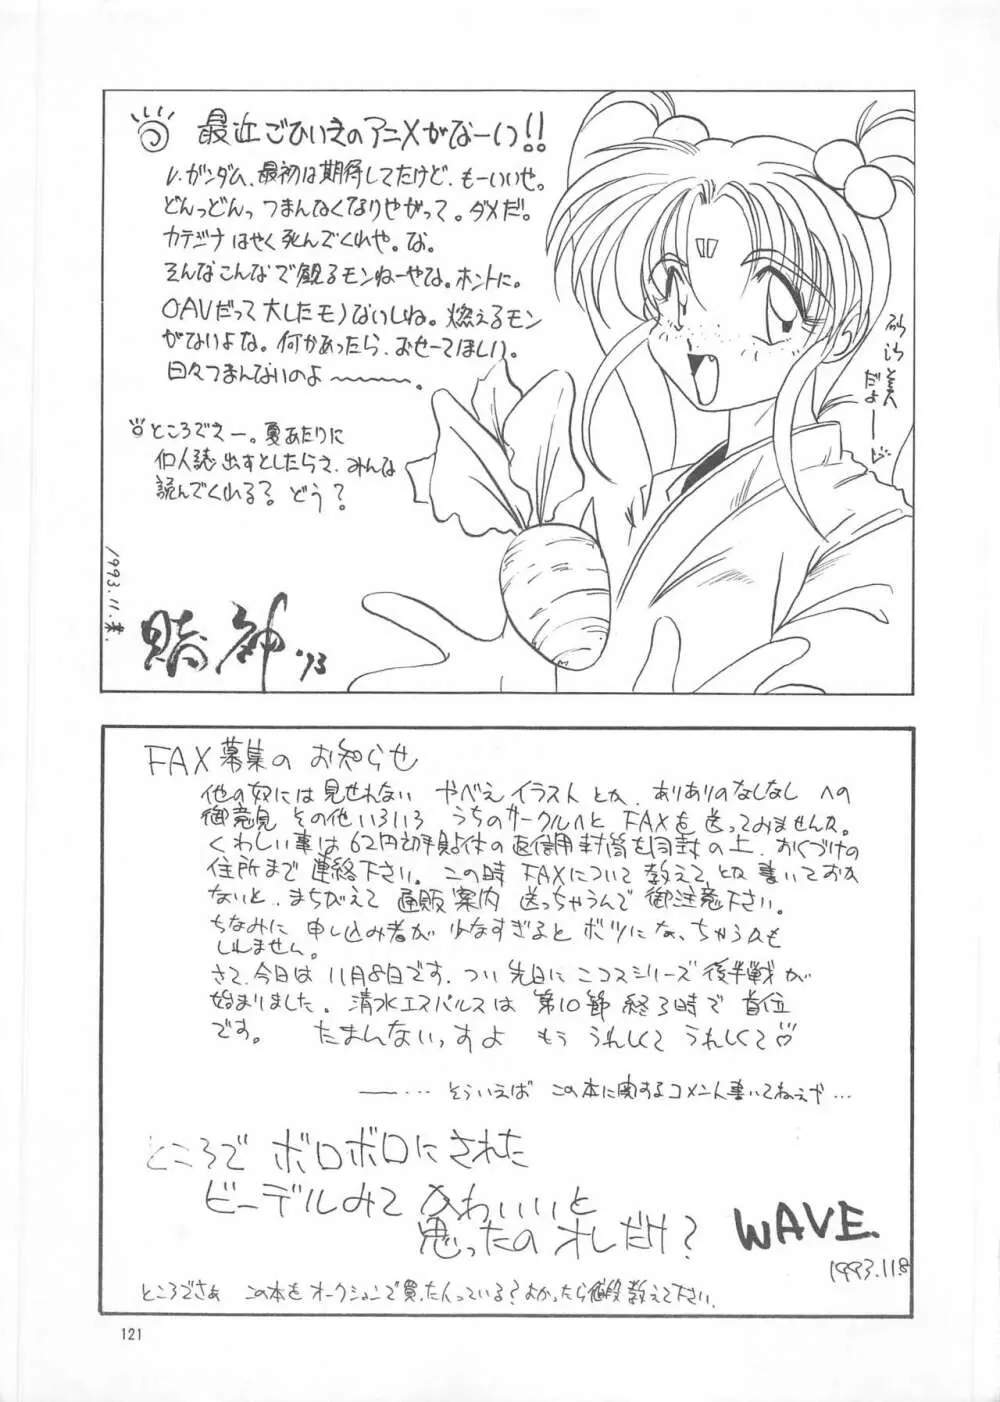 最近ごひいきのアニメがなーいっ!!
V.ガンダム、最初は期待してたけど、もーいいぜ。
どんっどんっつまんなくなりやがって。ダメだ。
カテジナはやく死んでくれや。な。
そんなこんなで観るモンねーやな。ホントに。
OAVだって大したモノないしね。燃えるモン
がないよな。何かあったら、おせーてほしい。
日々つまんないのよ〜〜〜。
ところでえー。夏あたりに
個人誌出すとしたらさ、みんな
読んでくれる？ どう？
1993.11.末.
賭神 '93
砂沙美
だよー
FAX募集のお知らせ
他の奴には見せれない やべえイラストとか、ありありのなしなし への
御意見 その他いろいろ うちのサークルへと FAXを送ってみませんか。
くわしい事は62円切手貼付の返信用封筒を同封の上、おくづけの
住所まで連絡下さい。この時 FAXについて教えて とか書いておか
ないと、まちがえて 通販案内 送っちゃうんで 御注意下さい。
ちなみに 申し込み者が 少なすぎると ボツになっちゃうかも
しれません。
さて、今日は 11月8日です。つい先日にニコスシリーズ後半戦が
始まりました。清水エスパルスは 第10節 終了時で 首位
です。 たまんないっすよ もう うれしくて うれしくて♡
――… そういえば この本に関するコメント書いてねぇや…
ところで ボロボロにされた
ビーデルみて かわいいと
思ったのオレだけ？
WAVE.
1993.11.8
ところでさぁ この本をオークションで買った人っている？よかったら値段教えて下さい.
121